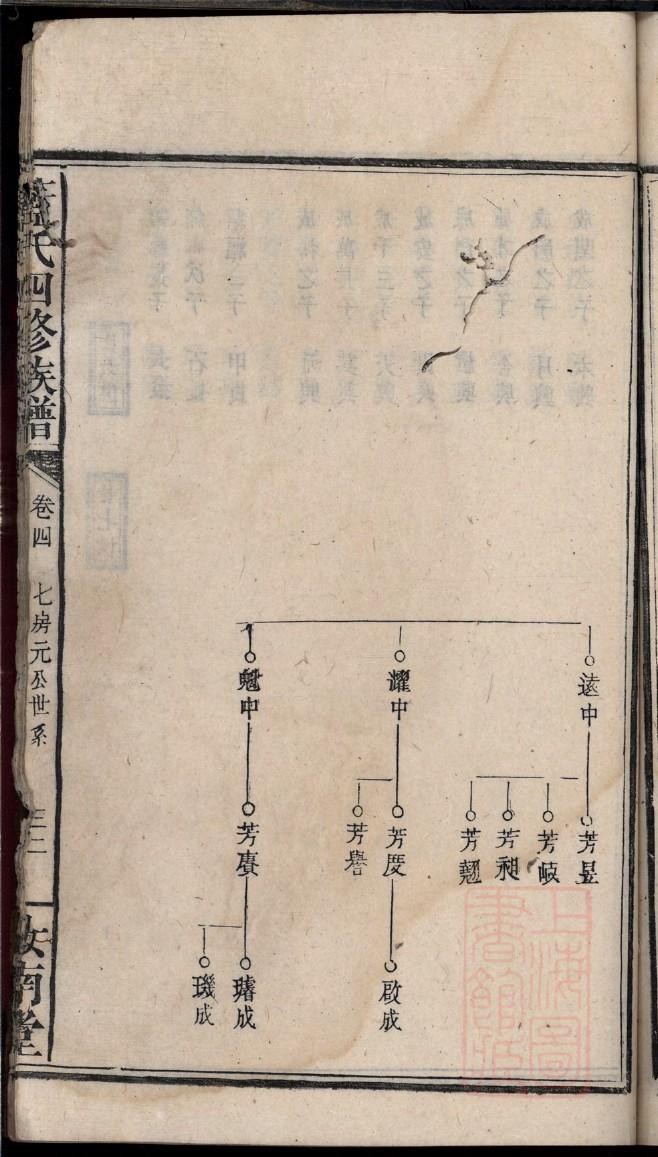 遠中
耀中
魁中
芳昱
芳岐
芳昶
芳翹
芳度
芳譽
芳賡
啟成
璿成
璣成
氏四修族譜
卷四
七房元公世系
三二
汝南堂
上海圖書館藏